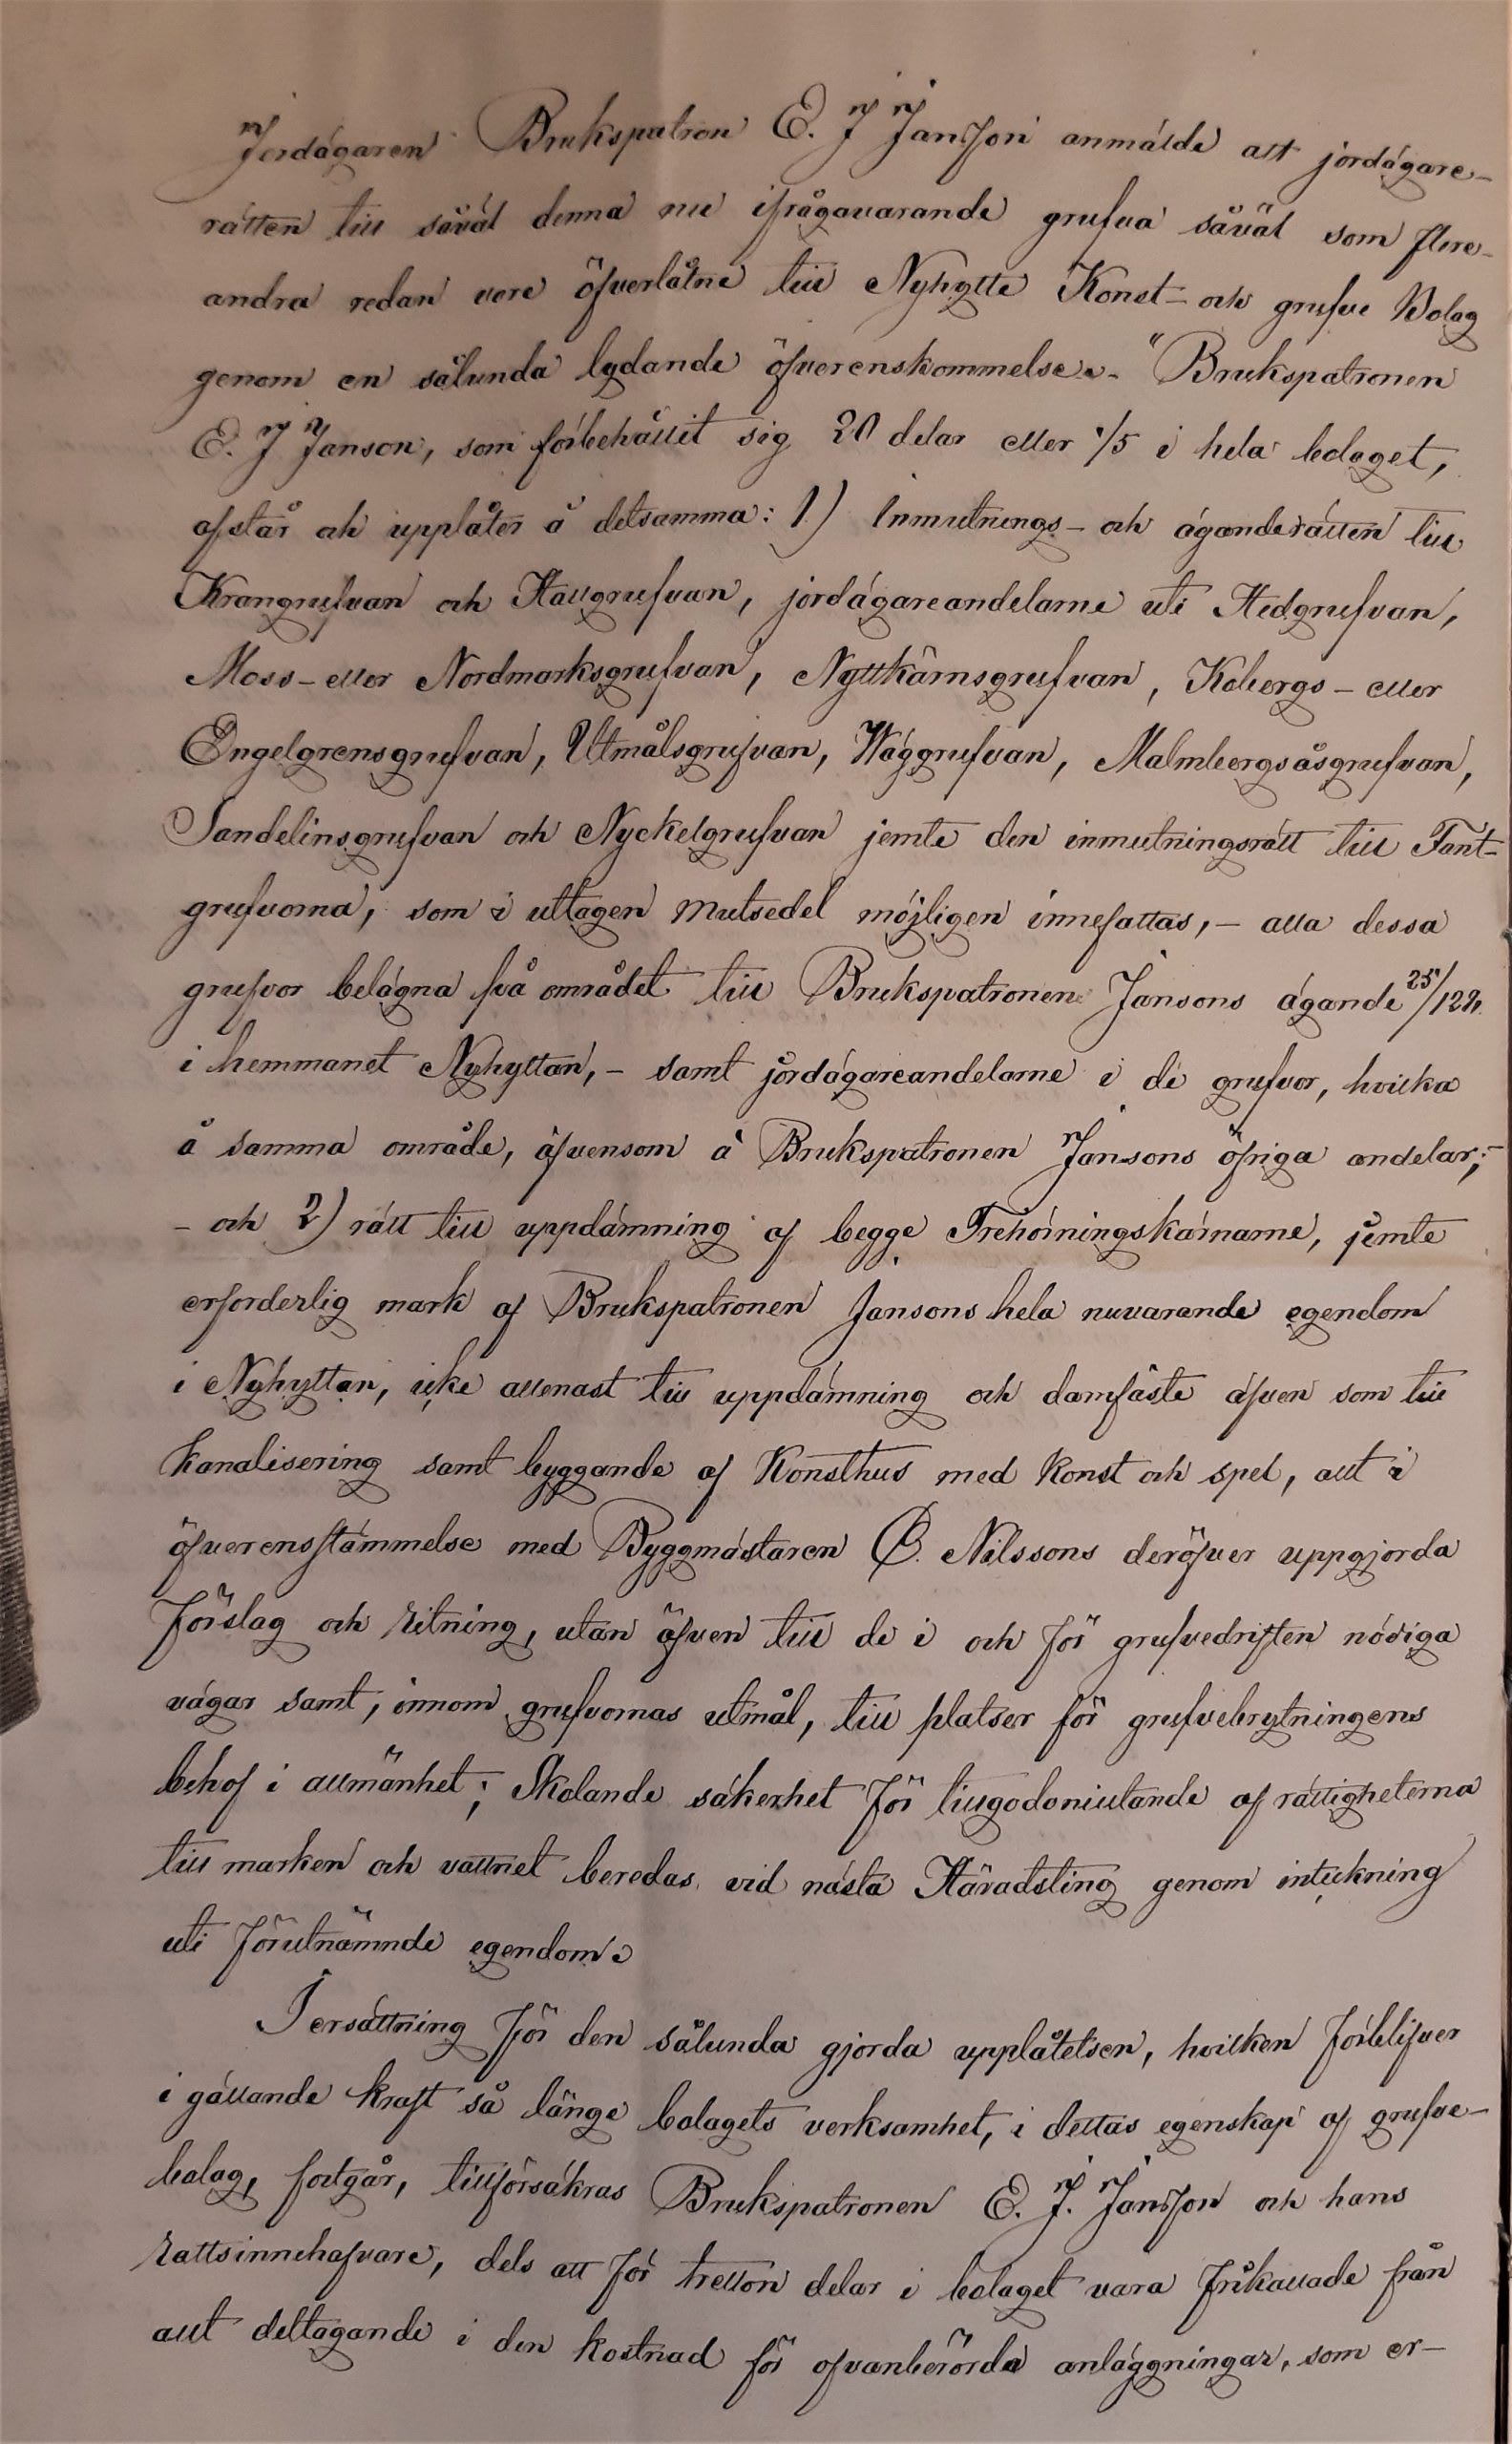 Jordägaren Brukspatron E. J Jansson anmälde att jordägare-
rätten till såväl denna nu ifrågavarande grufva såväl som flere
andra redan vore öfverlåtne till Nyhytte Konst- och grufve Bolag
genom en sålunda lydande öfverenskommelse. "Brukspatronen
E. J Janson, som förbehållit sig 20 delar eller 1/5 i hela bolaget,
afstår och upplåter å detsamma: 1) Inmutnings- och äganderätten till
Krangrufvan och Hallgrufvan, jordägareandelarne uti Hedgrufvan,
Moss- eller Nordmarksgrufvan, Nyttkärnsgrufvan, Kobergs- eller
Engelgrensgrufvan, Utmålsgrufvan, Wäggrufvan, Malmbergsåsgrufvan,
Sandelinsgrufvan och Nyckelgrufvan jemte den inmutningsrätt till Tant-
grufvorna, som i uttagen mutsedel möjligen innefattas, - alla dessa
grufvor belägna på området till Brukspatronen Jansons ägande 25/128
i hemmanet Nyhyttan, - samt jordägareandelarne i de grufvor, hvilka
å samma område, äfvensom å Brukspatronen Jansons öfriga andelar; -
- och 2) rätt till uppdämning af begge Trehörningskärnarne, jemte
erforderlig mark af Brukspatronen Jansons hela nuvarande egendom
i Nyhyttan, icke allenast till uppdämning och damfäste äfven som till
kanalisering samt byggande af Konsthus med konst och spel, allt i
öfverensstämmelse med Byggmästaren O. Nilssons deröfver uppgjorda
förslag och ritning, utan äfven till de i och för grufvedriften nödiga
vägar samt, innom grufvornas utmål, till platser för grufvebrytningens
behof i allmänhet; Skolande säkerhet för tillgodoniutande af rättigheterna
till marken och vattnet beredas vid nästa Häradsting genom inteckning
uti förutnämnde egendom.
I ersättning för den sålunda gjorda upplåtelsen, hvilken förblifver
i gällande kraft så länge bolagets verksamhet, i dettas egenskap af grufve-
bolag, fortgår, tillförsäkras Brukspatronen E. J. Jansson och hans
rättsinnehafvare, dels att för tretton delar i bolaget vara frikallade från
allt deltagande i den kostnad för ofvanberörda anläggningar, som er-